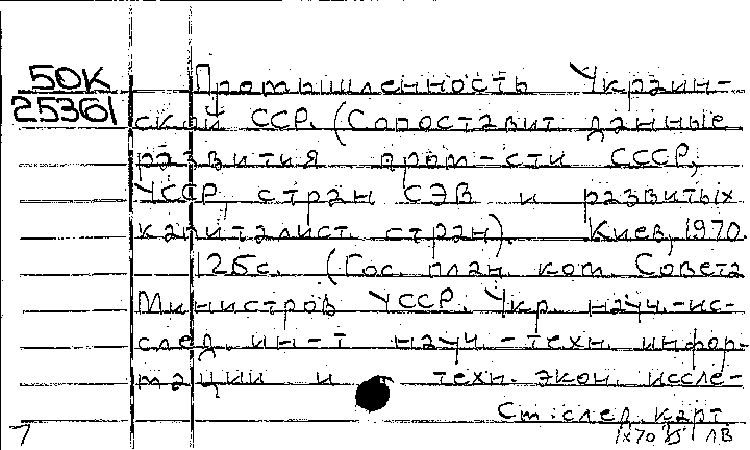 50К
25361
Промышленность Украин-
ской ССР. (Сопоставит данные
развития пром-сти СССР,
УССР, стран СЭВ и развитых
капиталист. стран). Киев, 1970.
126с. (Гос. план. ком. Совета
Министров УССР. Укр. науч.-ис-
след. ин-т науч.-техн. инфор-
мации и техн.-экон. иссле-
См. след. карт.
7